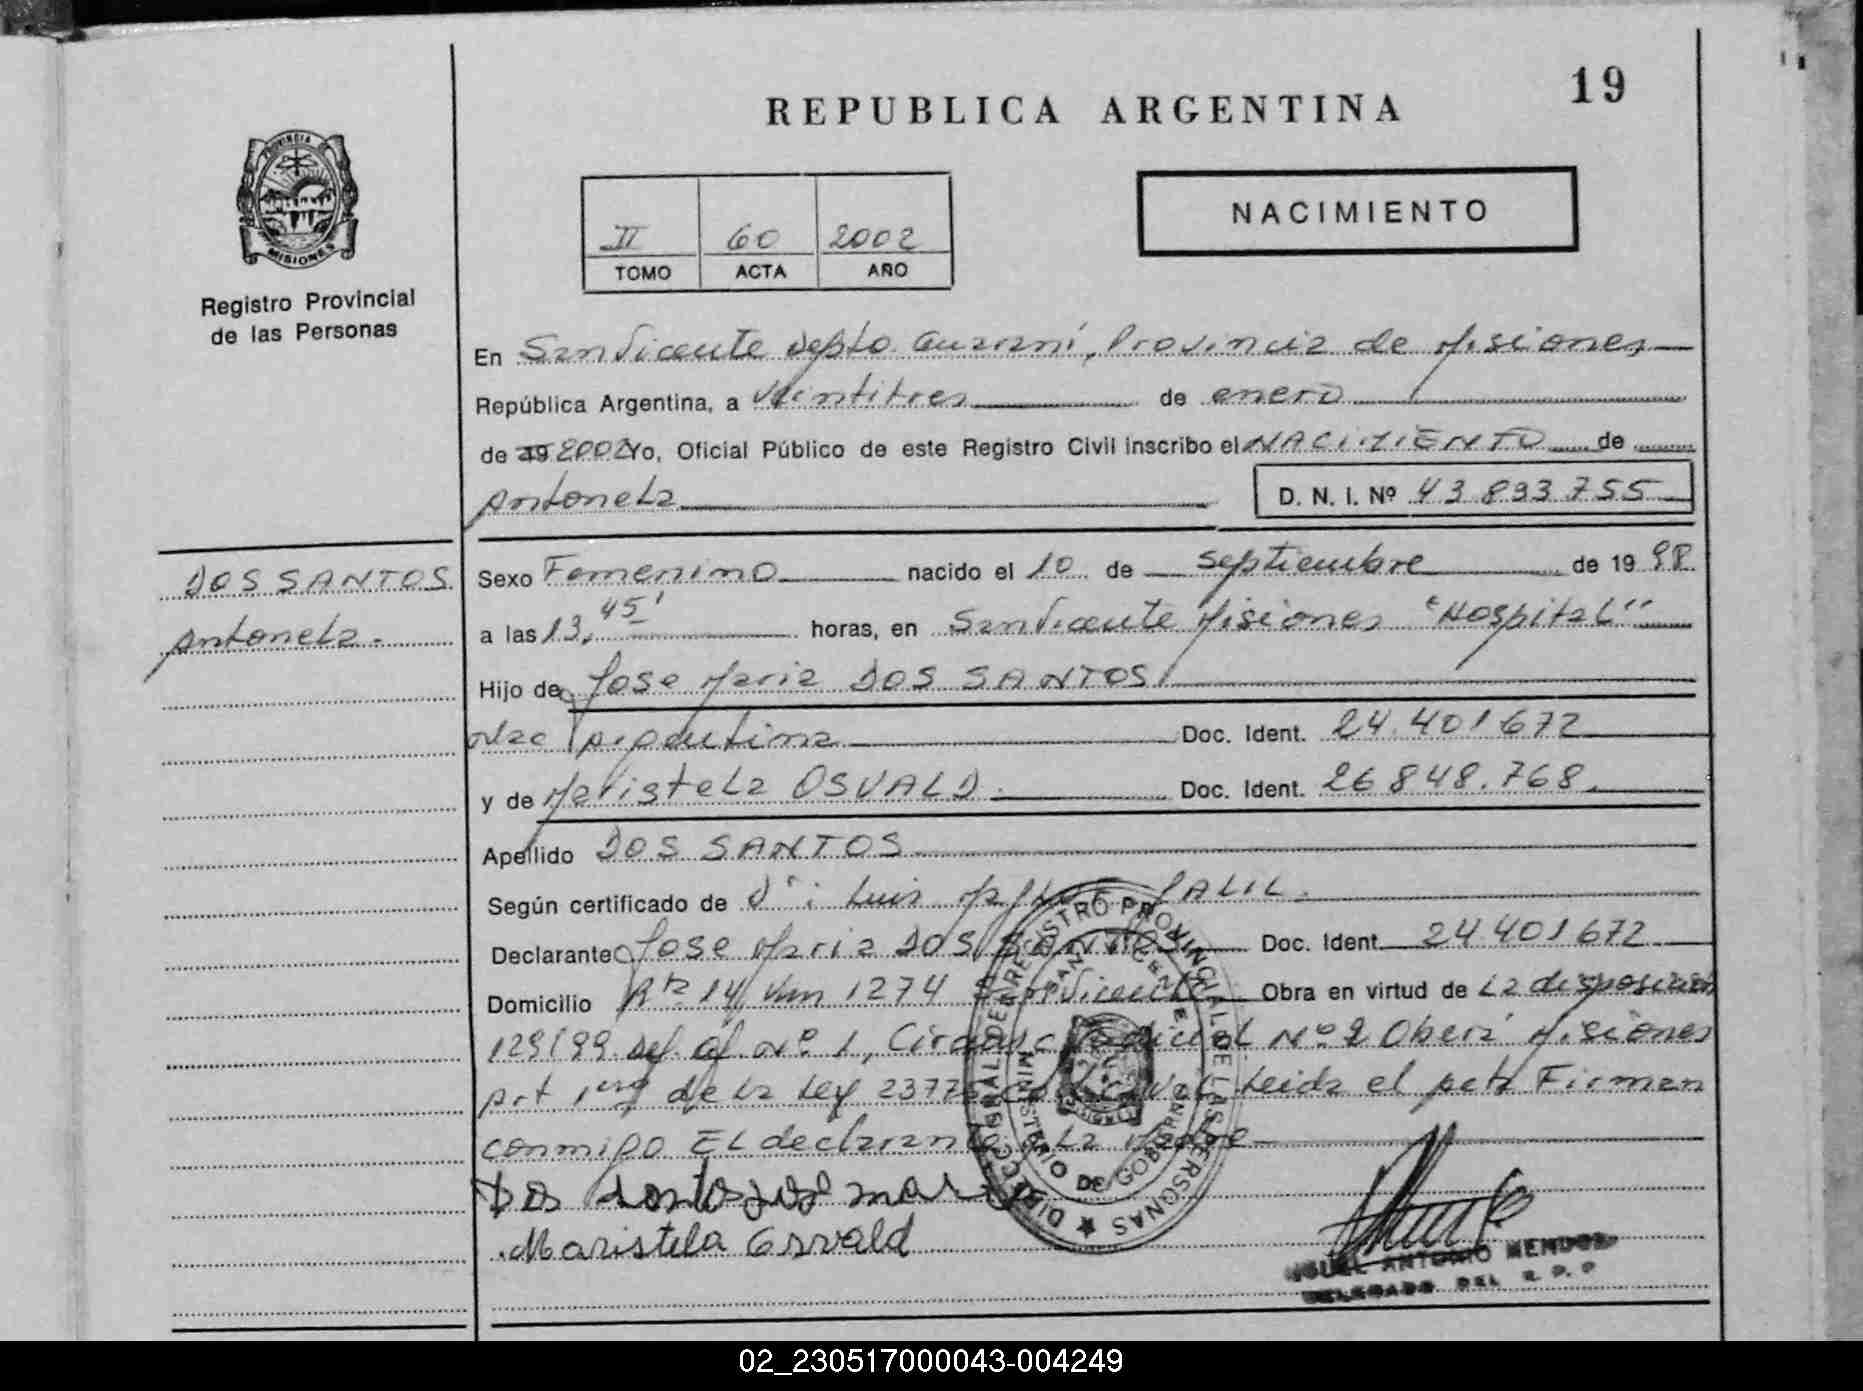 19
REPUBLICA ARGENTINA
PROVINCIA DE
MISIONES
Registro Provincial
de las Personas
II 60 2002
TOMO ACTA AÑO
NACIMIENTO
En San Vicente Depto. Guaraní, Provincia de Misiones
República Argentina, a veintitres de enero
de 19 2002 Yo, Oficial Público de este Registro Civil inscribo el NACIMIENTO de
Antonela D. N. I. Nº 43 893 755
DOS SANTOS
Antonela.
Sexo Femenino nacido el 10 de septiembre de 19 98
a las 13,45' horas, en San Vicente Misiones "Hospital"
Hijo de Jose Maria DOS SANTOS
Nac Argentina Doc. Ident. 24.401672
y de Maristela OSVALD. Doc. Ident. 26848.768.
Apellido DOS SANTOS
Según certificado de Dr: Luis JALIL.
Declarante Jose Maria DOS SANTOS Doc. Ident. 24401672
Domicilio Rta 14 km 1274 San Vicente Obra en virtud de La disposición
129/99 del of. Nº 1, Judicial Nº 2 Oberá Misiones
Art 1ero de la Ley Leida el acta Firman
conmigo El declarante y La Madre
Dos santos jose maria
Maristela Osvald
DIRECC. GRAL. DEL REGISTRO PROVINCIAL DE LAS PERSONAS
SAN VICENTE
MINISTERIO DE GOBIERNO
MIGUEL ANTONIO MENDOZA
DELEGADO DEL R. P. P
02_230517000043-004249